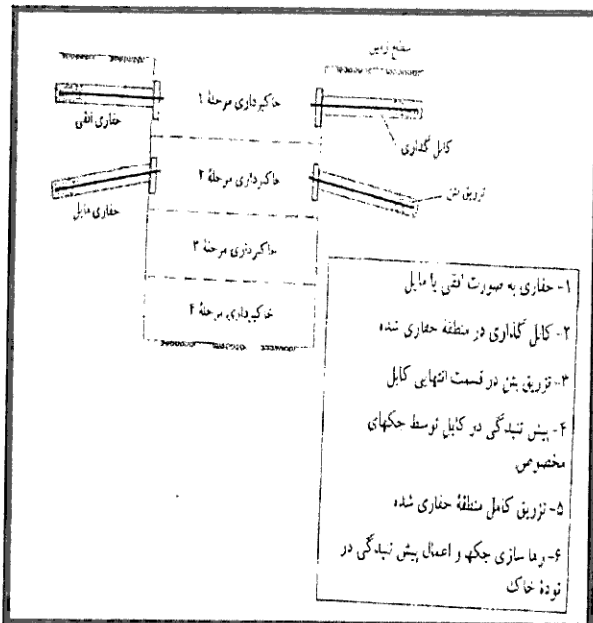 سطح زمین
خاکبرداری مرحلهٔ ۱
حفاری افقی
کابل گذاری
خاکبرداری مرحلهٔ ۲
تزریق بتن
حفاری مایل
خاکبرداری مرحلهٔ ۳
خاکبرداری مرحلهٔ ۴
۱- حفاری به صورت افقی یا مایل
۲- کابل گذاری در منطقهٔ حفاری شده
۳- تزریق بتن در قسمت انتهایی کابل
۴- پیش تنیدگی در کابل توسط جکهای
مخصوص
۵- تزریق کامل منطقهٔ حفاری شده
۶- رها سازی جکها و اعمال پیش تنیدگی در
تودهٔ خاک